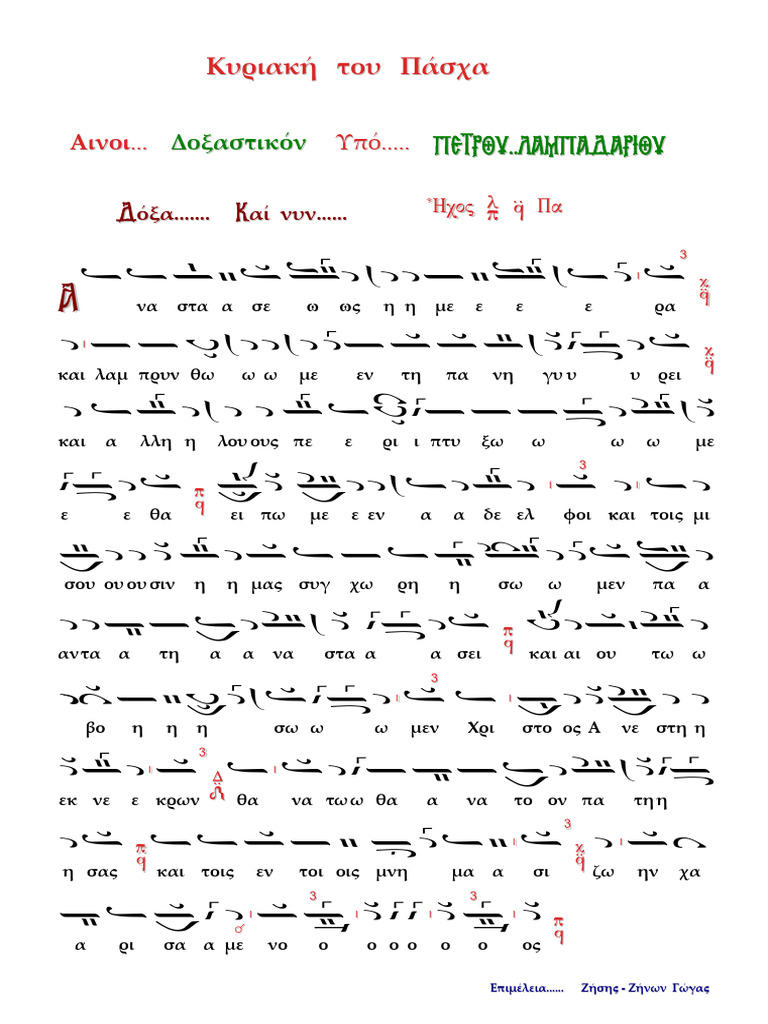 Κυριακή του Πάσχα
Αινοι... Δοξαστικόν Υπό..... ΠΕΤΡΟΥ..ΛΑΜΠΑΔΑΡΙΟΥ
Δόξα....... Καί νυν...... Ἦχος λ π q Πα
3
Ἀ να στα α σε ω ως η η με ε ε ε ρα
και λαμ πρυν θω ω ω με εν τη πα νη γυ υ υ ρει
και α λλη η λου ους πε ε ρι ι πτυ ξω ω ω ω με
3
ε ε θα ει πω με ε εν α α δε ελ φοι και τοις μι
σου ου ου σιν η η μας συγ χω ρη η σω ω μεν πα α
αν τα α τη α α να στα α α σει και αι ου τω ω
3
βο η η η σω ω ω μεν Χρι στο ος Α νε στη η
3
εκ νε ε κρων Δ θα να τω ω θα α να το ον πα τη η
3
η σας και τοις εν τοι οις μνη μα α σι ζω ην χα
3 3
α ρι σα α με νο ο ο ο ο ο ο ος
Επιμέλεια...... Ζήσης - Ζήνων Γώγας